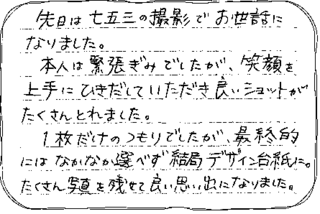 先日は七五三の撮影でお世話に
なりました。
本人は緊張ぎみでしたが、笑顔を
上手にひきだしていただき良いショットが
たくさんとれました。
1枚だけのつもりでしたが、最終的
にはなかなか選べず結局デザイン台紙に。
たくさん写真を残せて良い思い出になりました。